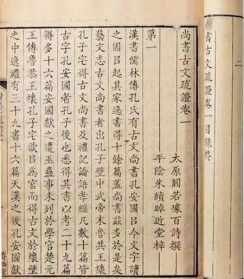 尚書古文疏證卷一目錄終
尚書古文疏證卷一
太原閻若璩百詩撰
平陰朱續晫近堂梓
第一
漢書儒林傳孔氏有古文尚書孔安國以今文字讀
之因以起其家逸書得十餘篇蓋尚書茲多於是矣
藝文志古文尚書者出孔子壁中武帝末魯共王壞
孔子宅得古文尚書及禮記論語孝經凡數十篇皆
古字孔安國者孔子後也悉得其書以考二十九篇
得多十六篇安國獻之遭巫蠱事未列於學官楚元
王傳魯恭王壞孔子宅欲以為宮而得古文於壞壁
之中逸禮有三十九書十六篇天漢之後孔安國獻